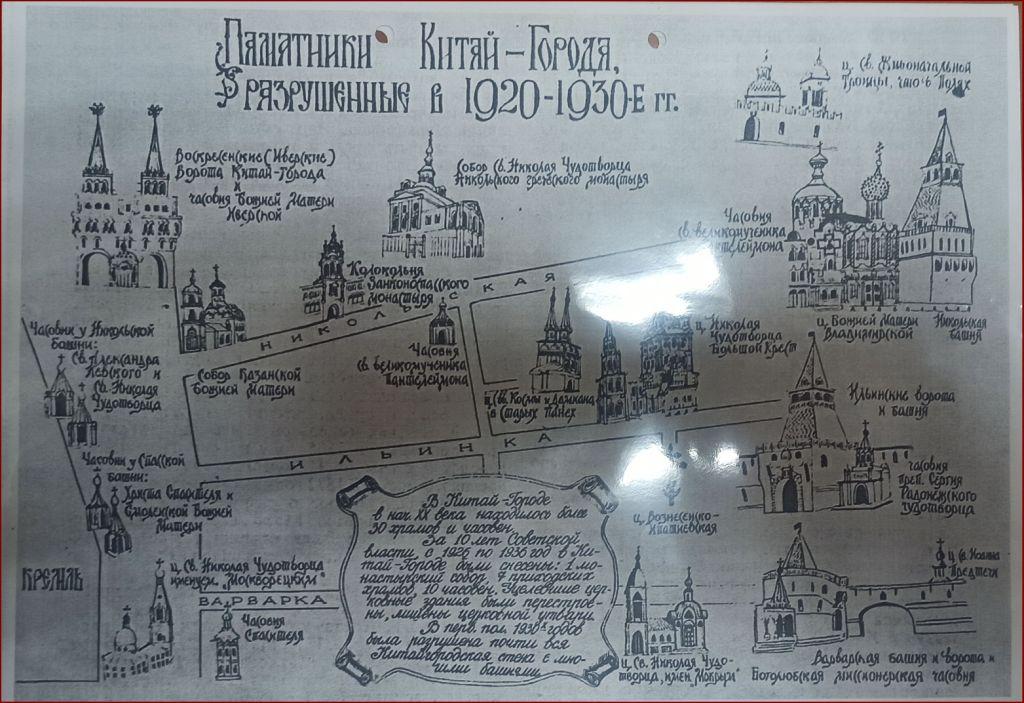 Памятники Китай-Города,
разрушенные в 1920-1930-е гг.
ц. Св. Живоначальной
Троицы, что в Полях
Воскресенские (Иверские)
Ворота Китай-города
и
часовня Божией Матери
Иверской
Собор Св. Николая Чудотворца
Никольского греческого монастыря
Часовня
Св. великомученика
Пантелеймона
Колокольня
Заиконоспасского
монастыря
НИКОЛЬСКАЯ
Часовни у Никольской
башни:
Св. Александра
Невского и
Св. Николая
Чудотворца
Собор Казанской
Божией Матери
Часовня
Св. великомученика
Пантелеймона
ц. Николая
Чудотворца
Большой Крест
ц. Божией Матери
Владимирской
Никольская
башня
ц. Св. Космы и Дамиана
в Старых Панех
Ильинские ворота
и башня
ИЛЬИНКА
Часовни у Спасской
башни:
Христа Спасителя и
Смоленской Божией
Матери
часовня
преп. Сергия
Радонежского
чудотворца
ц. Вознесенско-
Ипатиевская
В Китай-Городе
в нач. XX века находилось более
30 храмов и часовен.
За 10 лет Советской
власти, с 1925 по 1936 год в Ки-
тай-Городе были снесены: 1 мо-
настырский собор, 7 приходских
храмов, 10 часовен. Уцелевшие цер-
ковные здания были перестрое-
ны, лишены церковной утвари.
В перв. пол. 1930х годов
была разрушена почти вся
Китайгородская стена с мно-
гими башнями.
КРЕМЛЬ
ц. Св. Николая Чудотворца
именуем. "Москворецкий"
ВАРВАРКА
Часовня
Спасителя
ц. Св. Николая Чудо-
творца, имен. "Мокрый"
ц. Св. Иоанна
Предтечи
Варварская башня и ворота и
Боголюбская миссионерская часовня